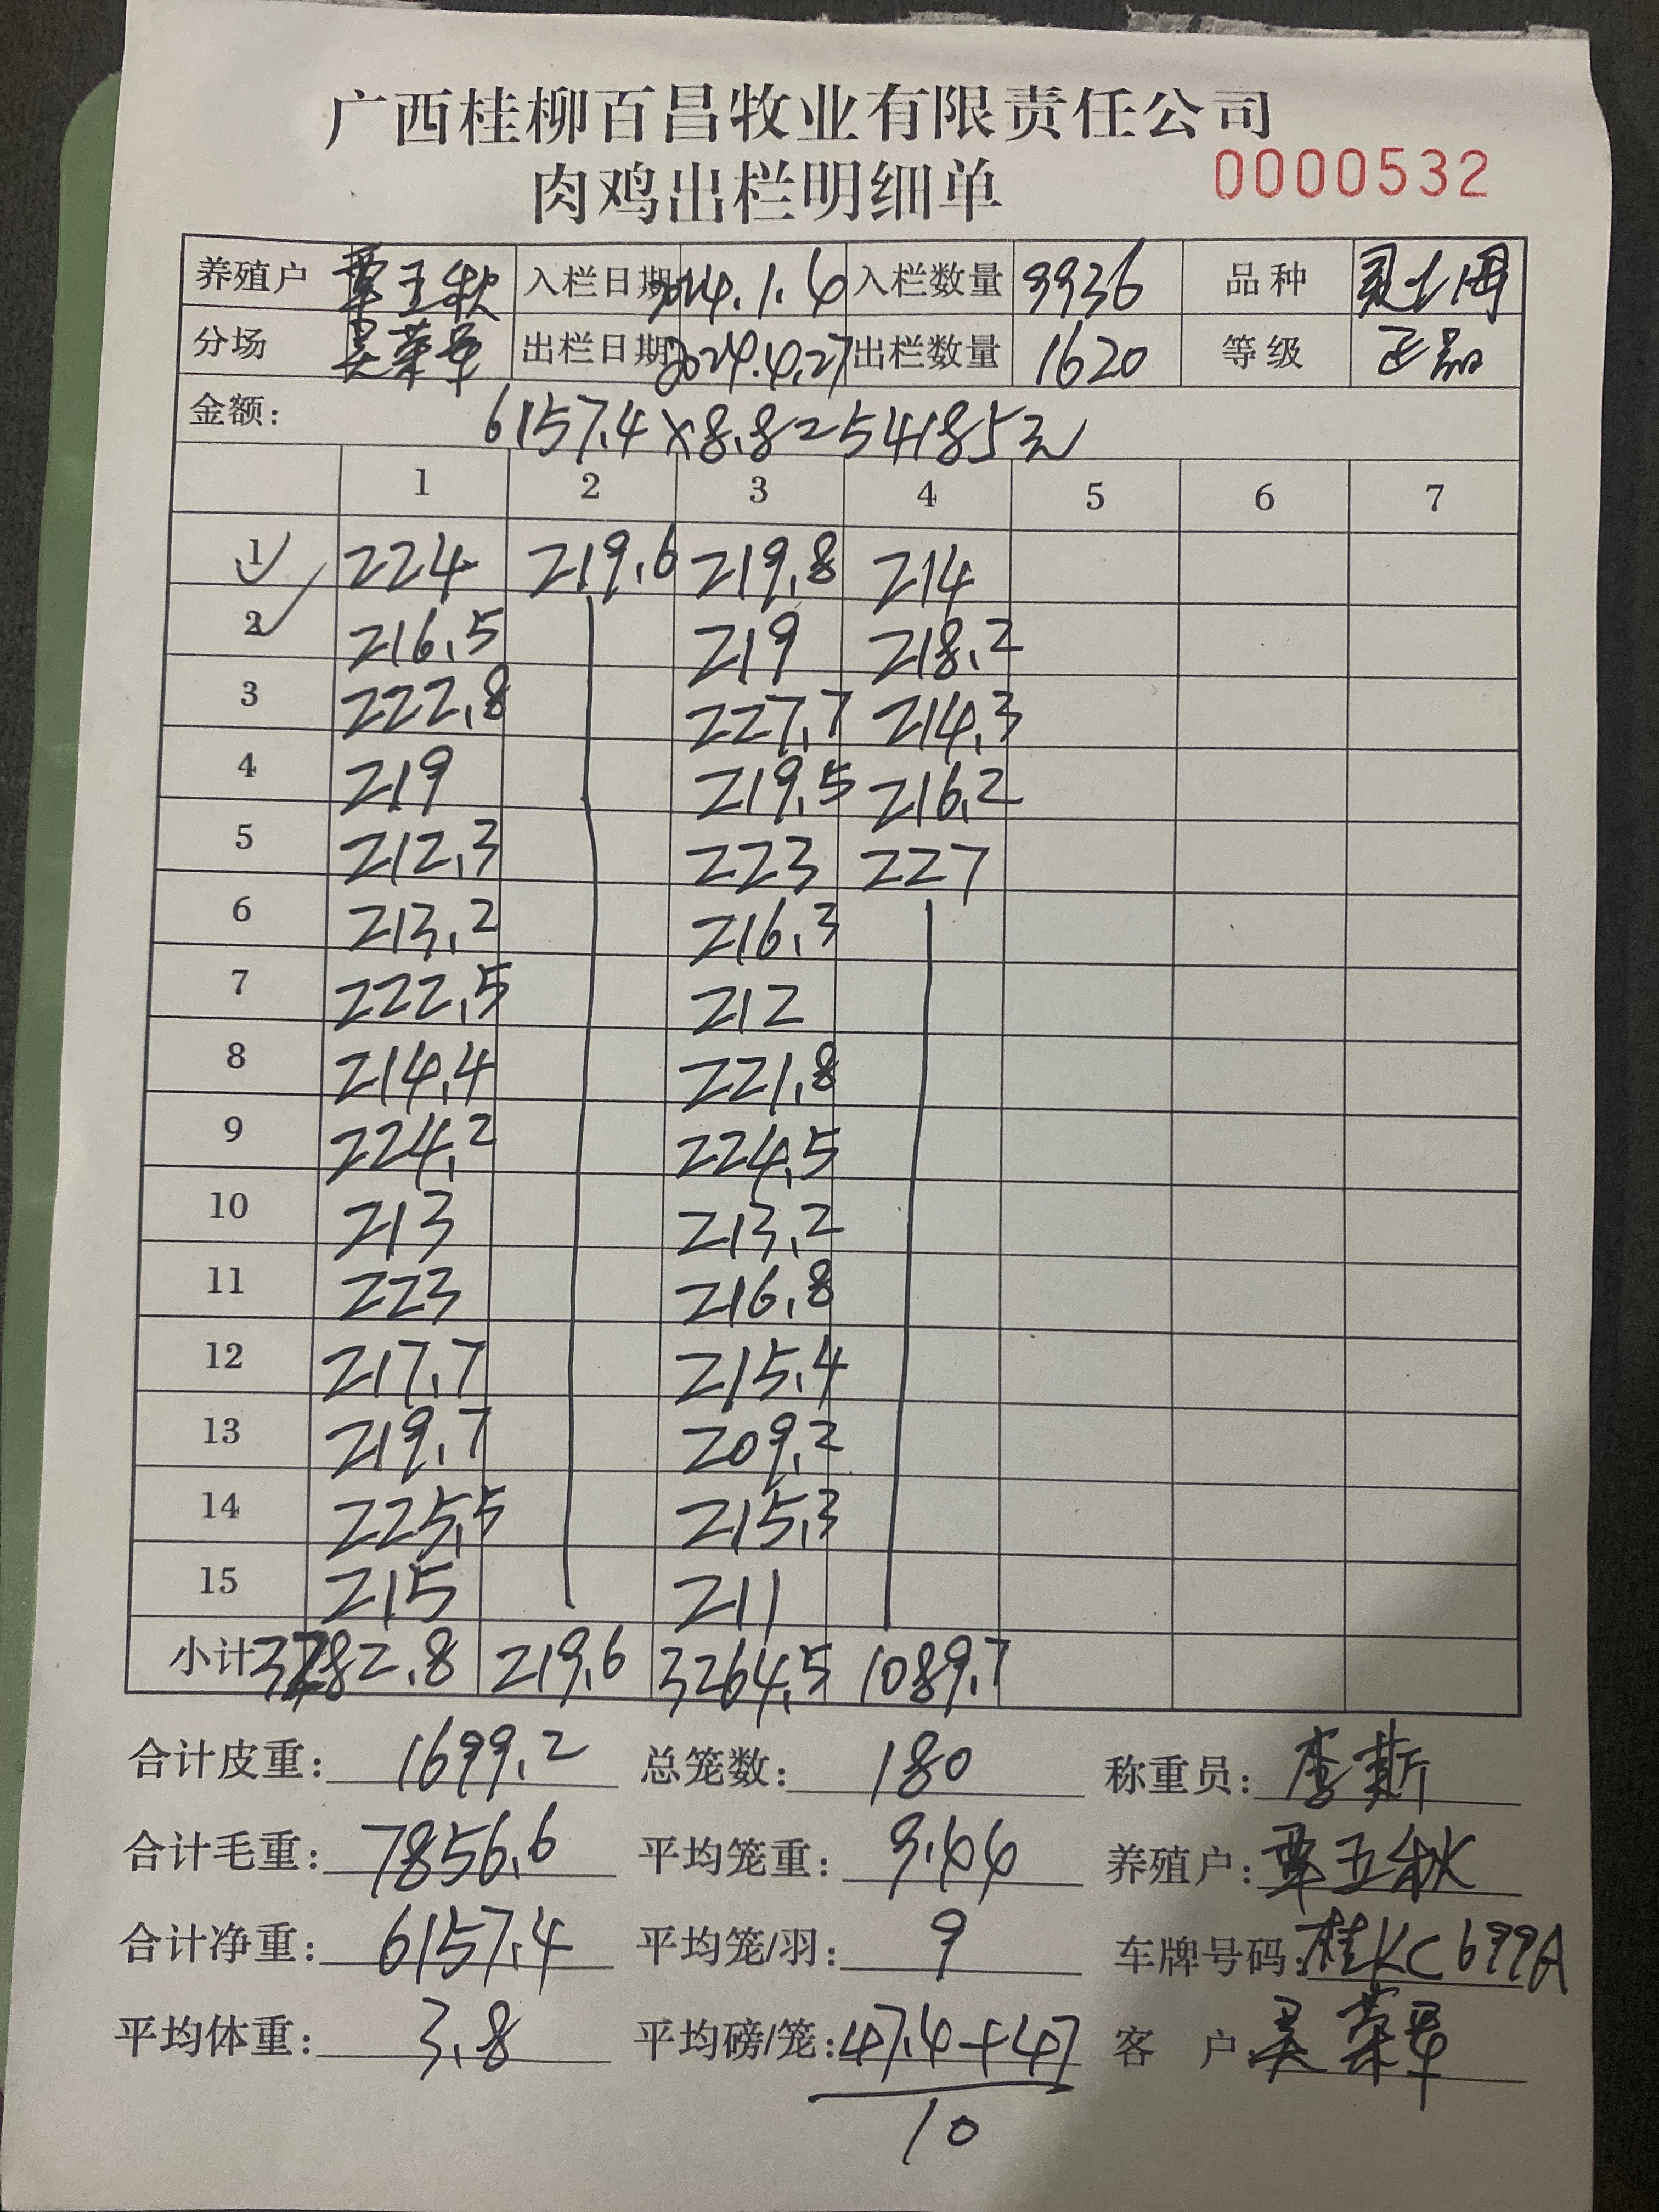 广西桂柳百昌牧业有限责任公司
肉鸡出栏明细单 0000532
养殖户 覃五秋 入栏日期 2024.1.6 入栏数量 9936 品种
分场 吴荣军 出栏日期 2024.4.27 出栏数量 1620 等级 正品
金额: 6157.4×8.8=54185元
1 2 3 4 5 6 7
1 224 219.6 219.8 214
2 216.5 219 218.2
3 222.8 227.7 214.3
4 219 219.5 216.2
5 212.3 223 227
6 213.2 216.3
7 222.5 212
8 214.4 221.8
9 224.2 224.5
10 213 213.2
11 223 216.8
12 217.7 215.4
13 219.7 209.2
14 225.5 215.3
15 215 211
小计 3282.8 219.6 3264.5 1089.7
合计皮重: 1699.2 总笼数: 180 称重员: 李斯
合计毛重: 7856.6 平均笼重: 9.44 养殖户: 覃五秋
合计净重: 6157.4 平均笼/羽: 9 车牌号码: 桂KC699A
平均体重: 3.8 平均磅/笼: 47.4+47 客户 吴荣军
10